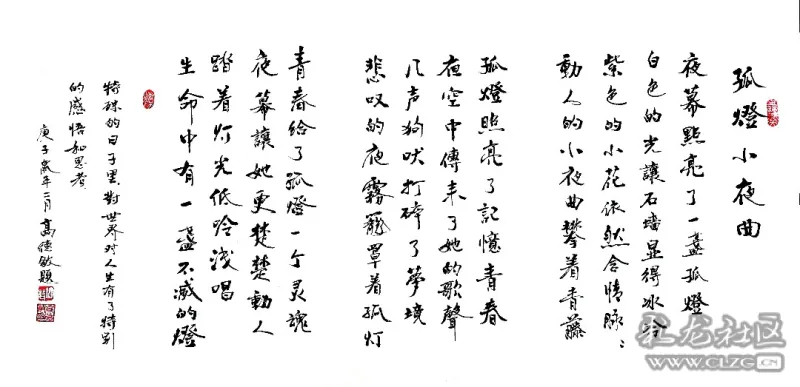 孤燈小夜曲
夜幕點亮了一盞孤燈
白色的光讓石墙显得冰冷
紫色的小花依然含情脉〻
動人的小夜曲攀着青藤
孤燈照亮了記憶青春
夜空中傳来了她的歌聲
几声狗吠打碎了夢境
悲叹的夜霧籠罩着孤灯
青春给了孤燈一个灵魂
夜幕讓她更楚楚動人
踏着灯光低吟浅唱
生命中有一盞不滅的燈
特殊的日子里對世界对人生有了特别
的感悟和思考
庚子鼠年二月高德敏题
龙社区
WWW.CLZG.CN